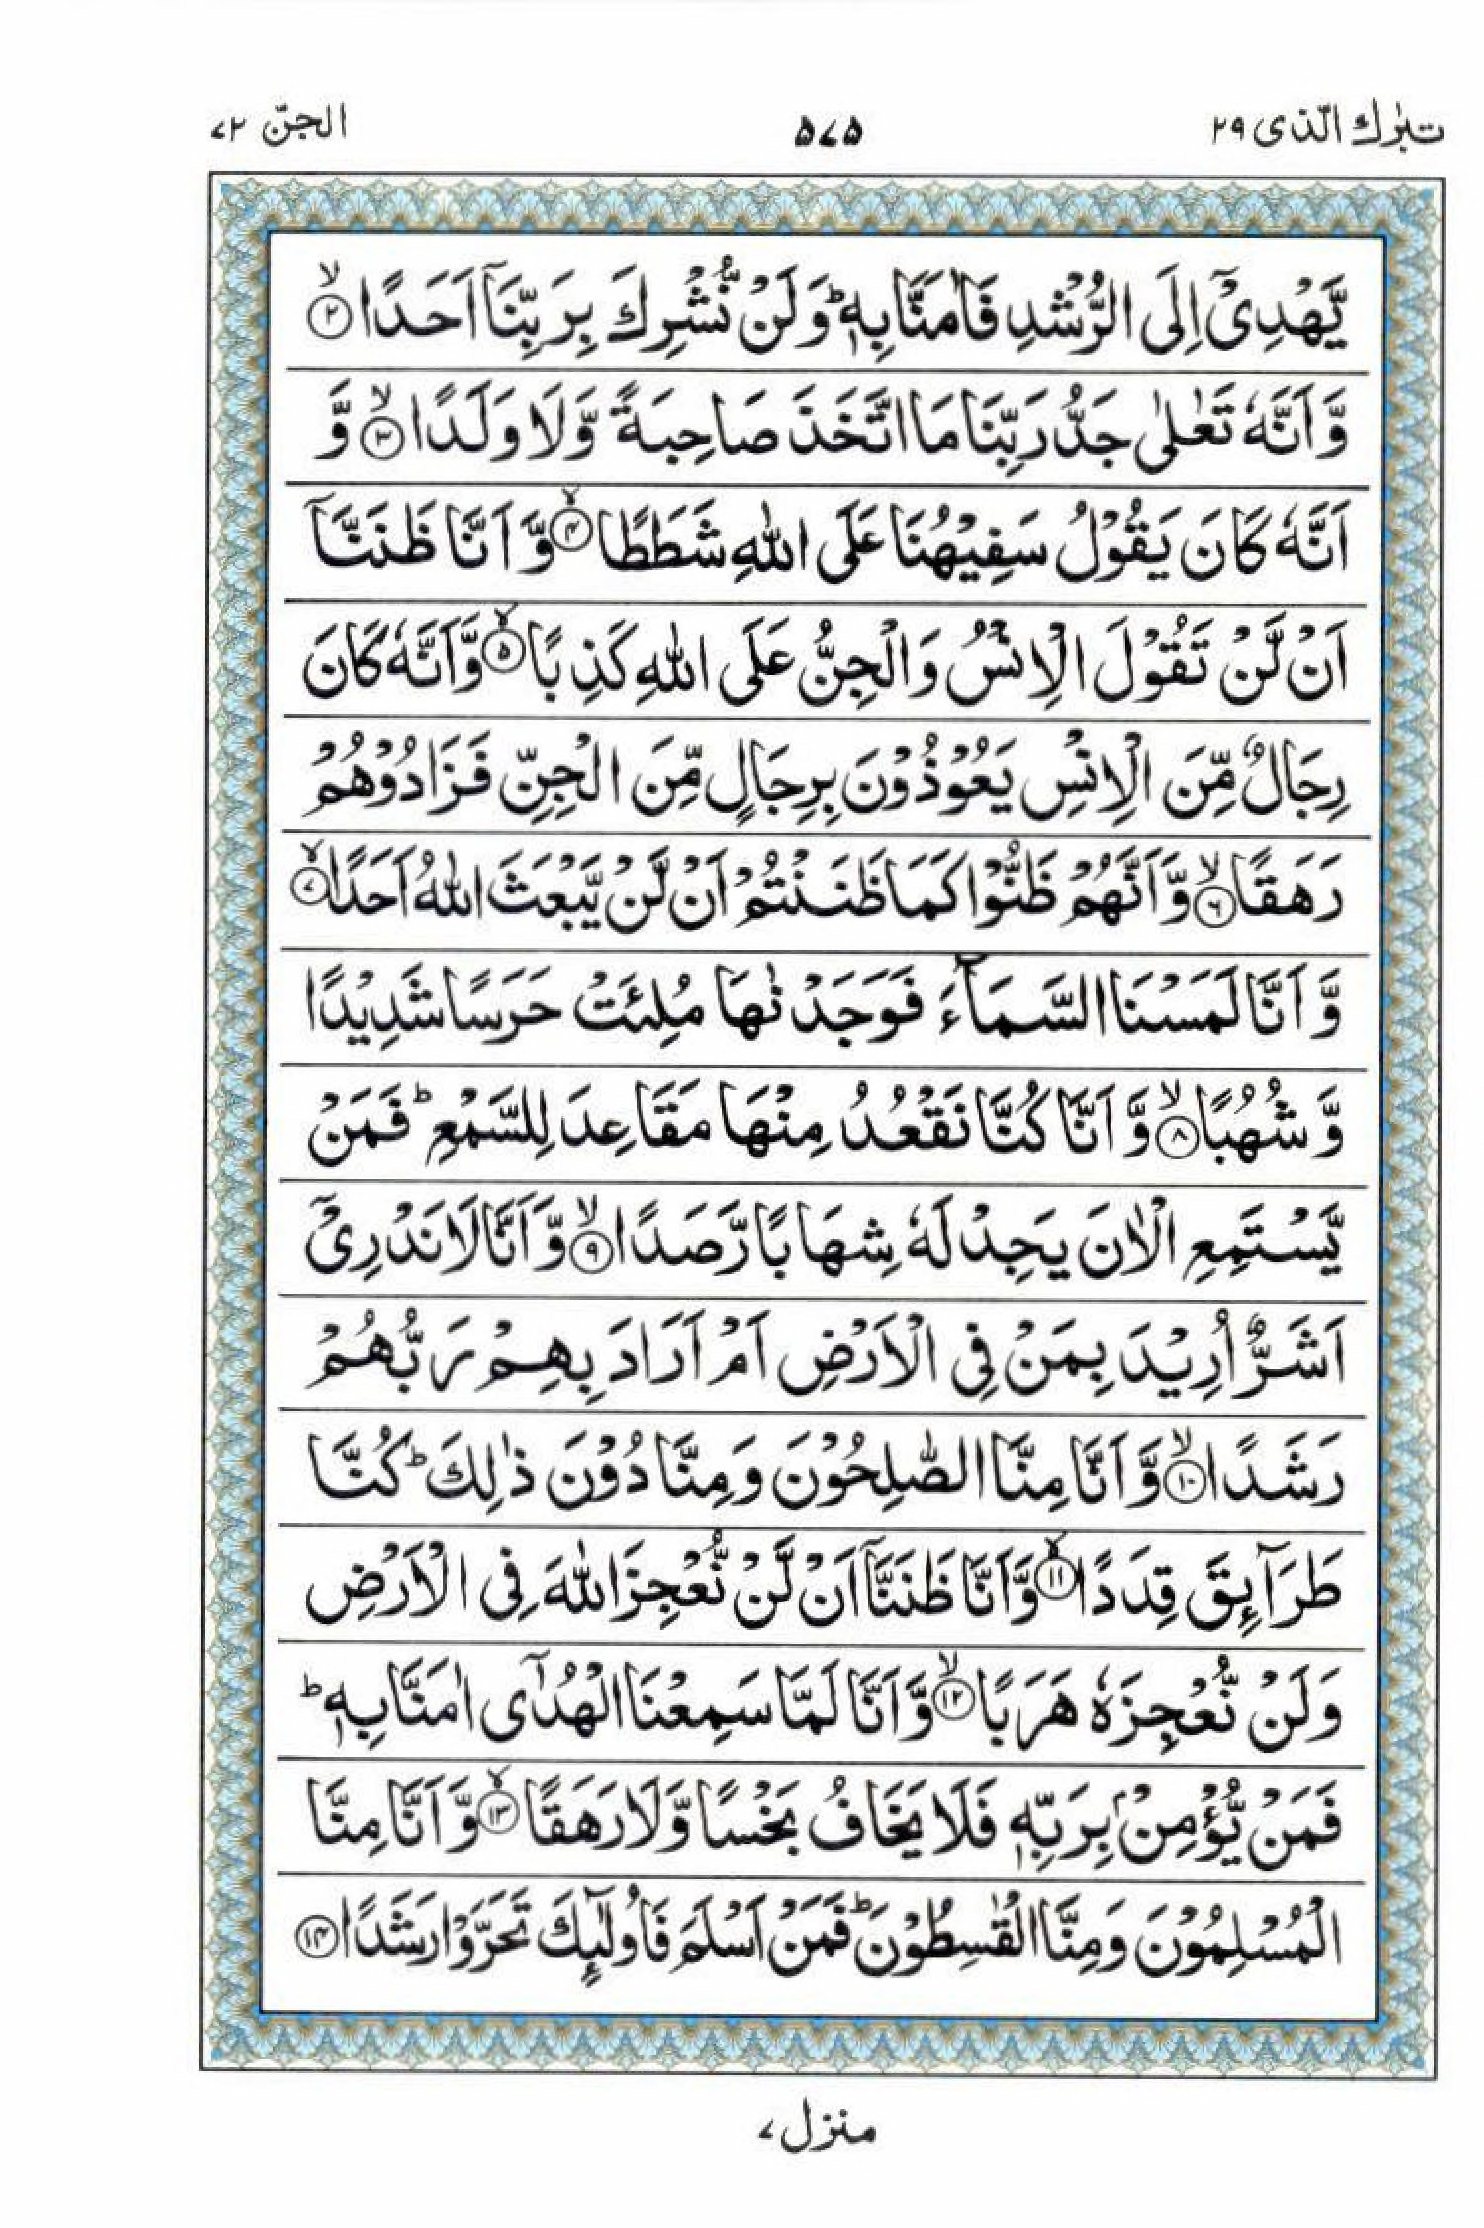 تبٰرك الّذى ٢٩ ٥٧٥ الجنّ ٧٢
يَّهْدِىْۤ اِلَى الرُّشْدِ فَاٰمَنَّا بِهٖ ؕ وَلَنْ نُّشْرِكَ بِرَبِّنَاۤ اَحَدًا ۙ‏﴿٢﴾
وَّ اَنَّهٗ تَعٰلٰى جَدُّ رَبِّنَا مَا اتَّخَذَ صَاحِبَةً وَّلَا وَلَدًا ۙ‏﴿٣﴾ وَّ
اَنَّهٗ كَانَ يَقُوْلُ سَفِيْهُنَا عَلَى اللّٰهِ شَطَطًا ۙ‏﴿٤﴾ وَّ اَنَّا ظَنَنَّاۤ
اَنْ لَّنْ تَقُوْلَ الْاِنْسُ وَالْجِنُّ عَلَى اللّٰهِ كَذِبًا ۙ‏﴿٥﴾ وَّاَنَّهٗ كَانَ
رِجَالٌ مِّنَ الْاِنْسِ يَعُوْذُوْنَ بِرِجَالٍ مِّنَ الْجِنِّ فَزَادُوْهُمْ
رَهَقًا ۙ‏﴿٦﴾ وَّاَنَّهُمْ ظَنُّوْا كَمَا ظَنَنْتُمْ اَنْ لَّنْ يَّبْعَثَ اللّٰهُ اَحَدًا ۙ‏﴿٧﴾
وَّ اَنَّا لَمَسْنَا السَّمَآءَ فَوَجَدْنٰهَا مُلِئَتْ حَرَسًا شَدِيْدًا
وَّ شُهُبًا ۙ‏﴿٨﴾ وَّ اَنَّا كُنَّا نَقْعُدُ مِنْهَا مَقَاعِدَ لِلسَّمْعِ ؕ فَمَنْ
يَّسْتَمِعِ الْاٰنَ يَجِدْ لَهٗ شِهَابًا رَّصَدًا ۙ‏﴿٩﴾ وَّ اَنَّا لَا نَدْرِىْۤ
اَشَرٌّ اُرِيْدَ بِمَنْ فِى الْاَرْضِ اَمْ اَرَادَ بِهِمْ رَبُّهُمْ
رَشَدًا ۙ‏﴿١٠﴾ وَّ اَنَّا مِنَّا الصّٰلِحُوْنَ وَمِنَّا دُوْنَ ذٰلِكَ ؕ كُنَّا
طَرَآئِقَ قِدَدًا ۙ‏﴿١١﴾ وَّاَنَّا ظَنَنَّاۤ اَنْ لَّنْ نُّعْجِزَ اللّٰهَ فِى الْاَرْضِ
وَلَنْ نُّعْجِزَهٗ هَرَبًا ۙ‏﴿١٢﴾ وَّاَنَّا لَمَّا سَمِعْنَا الْهُدٰٓى اٰمَنَّا بِهٖ ؕ
فَمَنْ يُّؤْمِنْۢ بِرَبِّهٖ فَلَا يَخَافُ بَخْسًا وَّلَا رَهَقًا ۙ‏﴿١٣﴾ وَّ اَنَّا مِنَّا
الْمُسْلِمُوْنَ وَمِنَّا الْقٰسِطُوْنَ ؕ فَمَنْ اَسْلَمَ فَاُولٰٓئِكَ تَحَرَّوْا رَشَدًا ﴿١٤﴾
منزل ٧